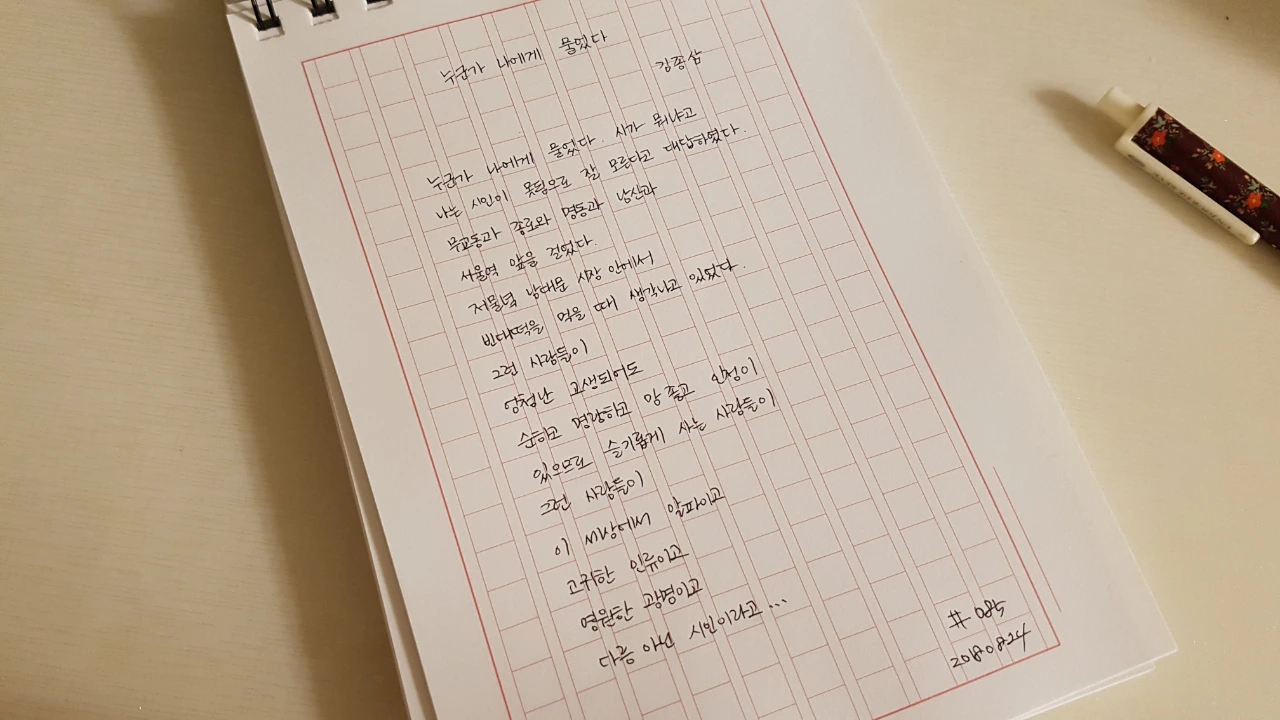 누군가 나에게 물었다
김종삼
누군가 나에게 물었다. 시가 뭐냐고
나는 시인이 못됨으로 잘 모른다고 대답하였다.
무교동과 종로와 명동과 남산과
서울역 앞을 걸었다.
저물녘 남대문 시장 안에서
빈대떡을 먹을 때 생각나고 있었다.
그런 사람들이
엄청난 고생되어도
순하고 명랑하고 맘 좋고 인정이
있으므로 슬기롭게 사는 사람들이
그런 사람들이
이 세상에서 알파이고
고귀한 인류이고
영원한 광명이고
다름 아닌 시인이라고...
# 085
20180824